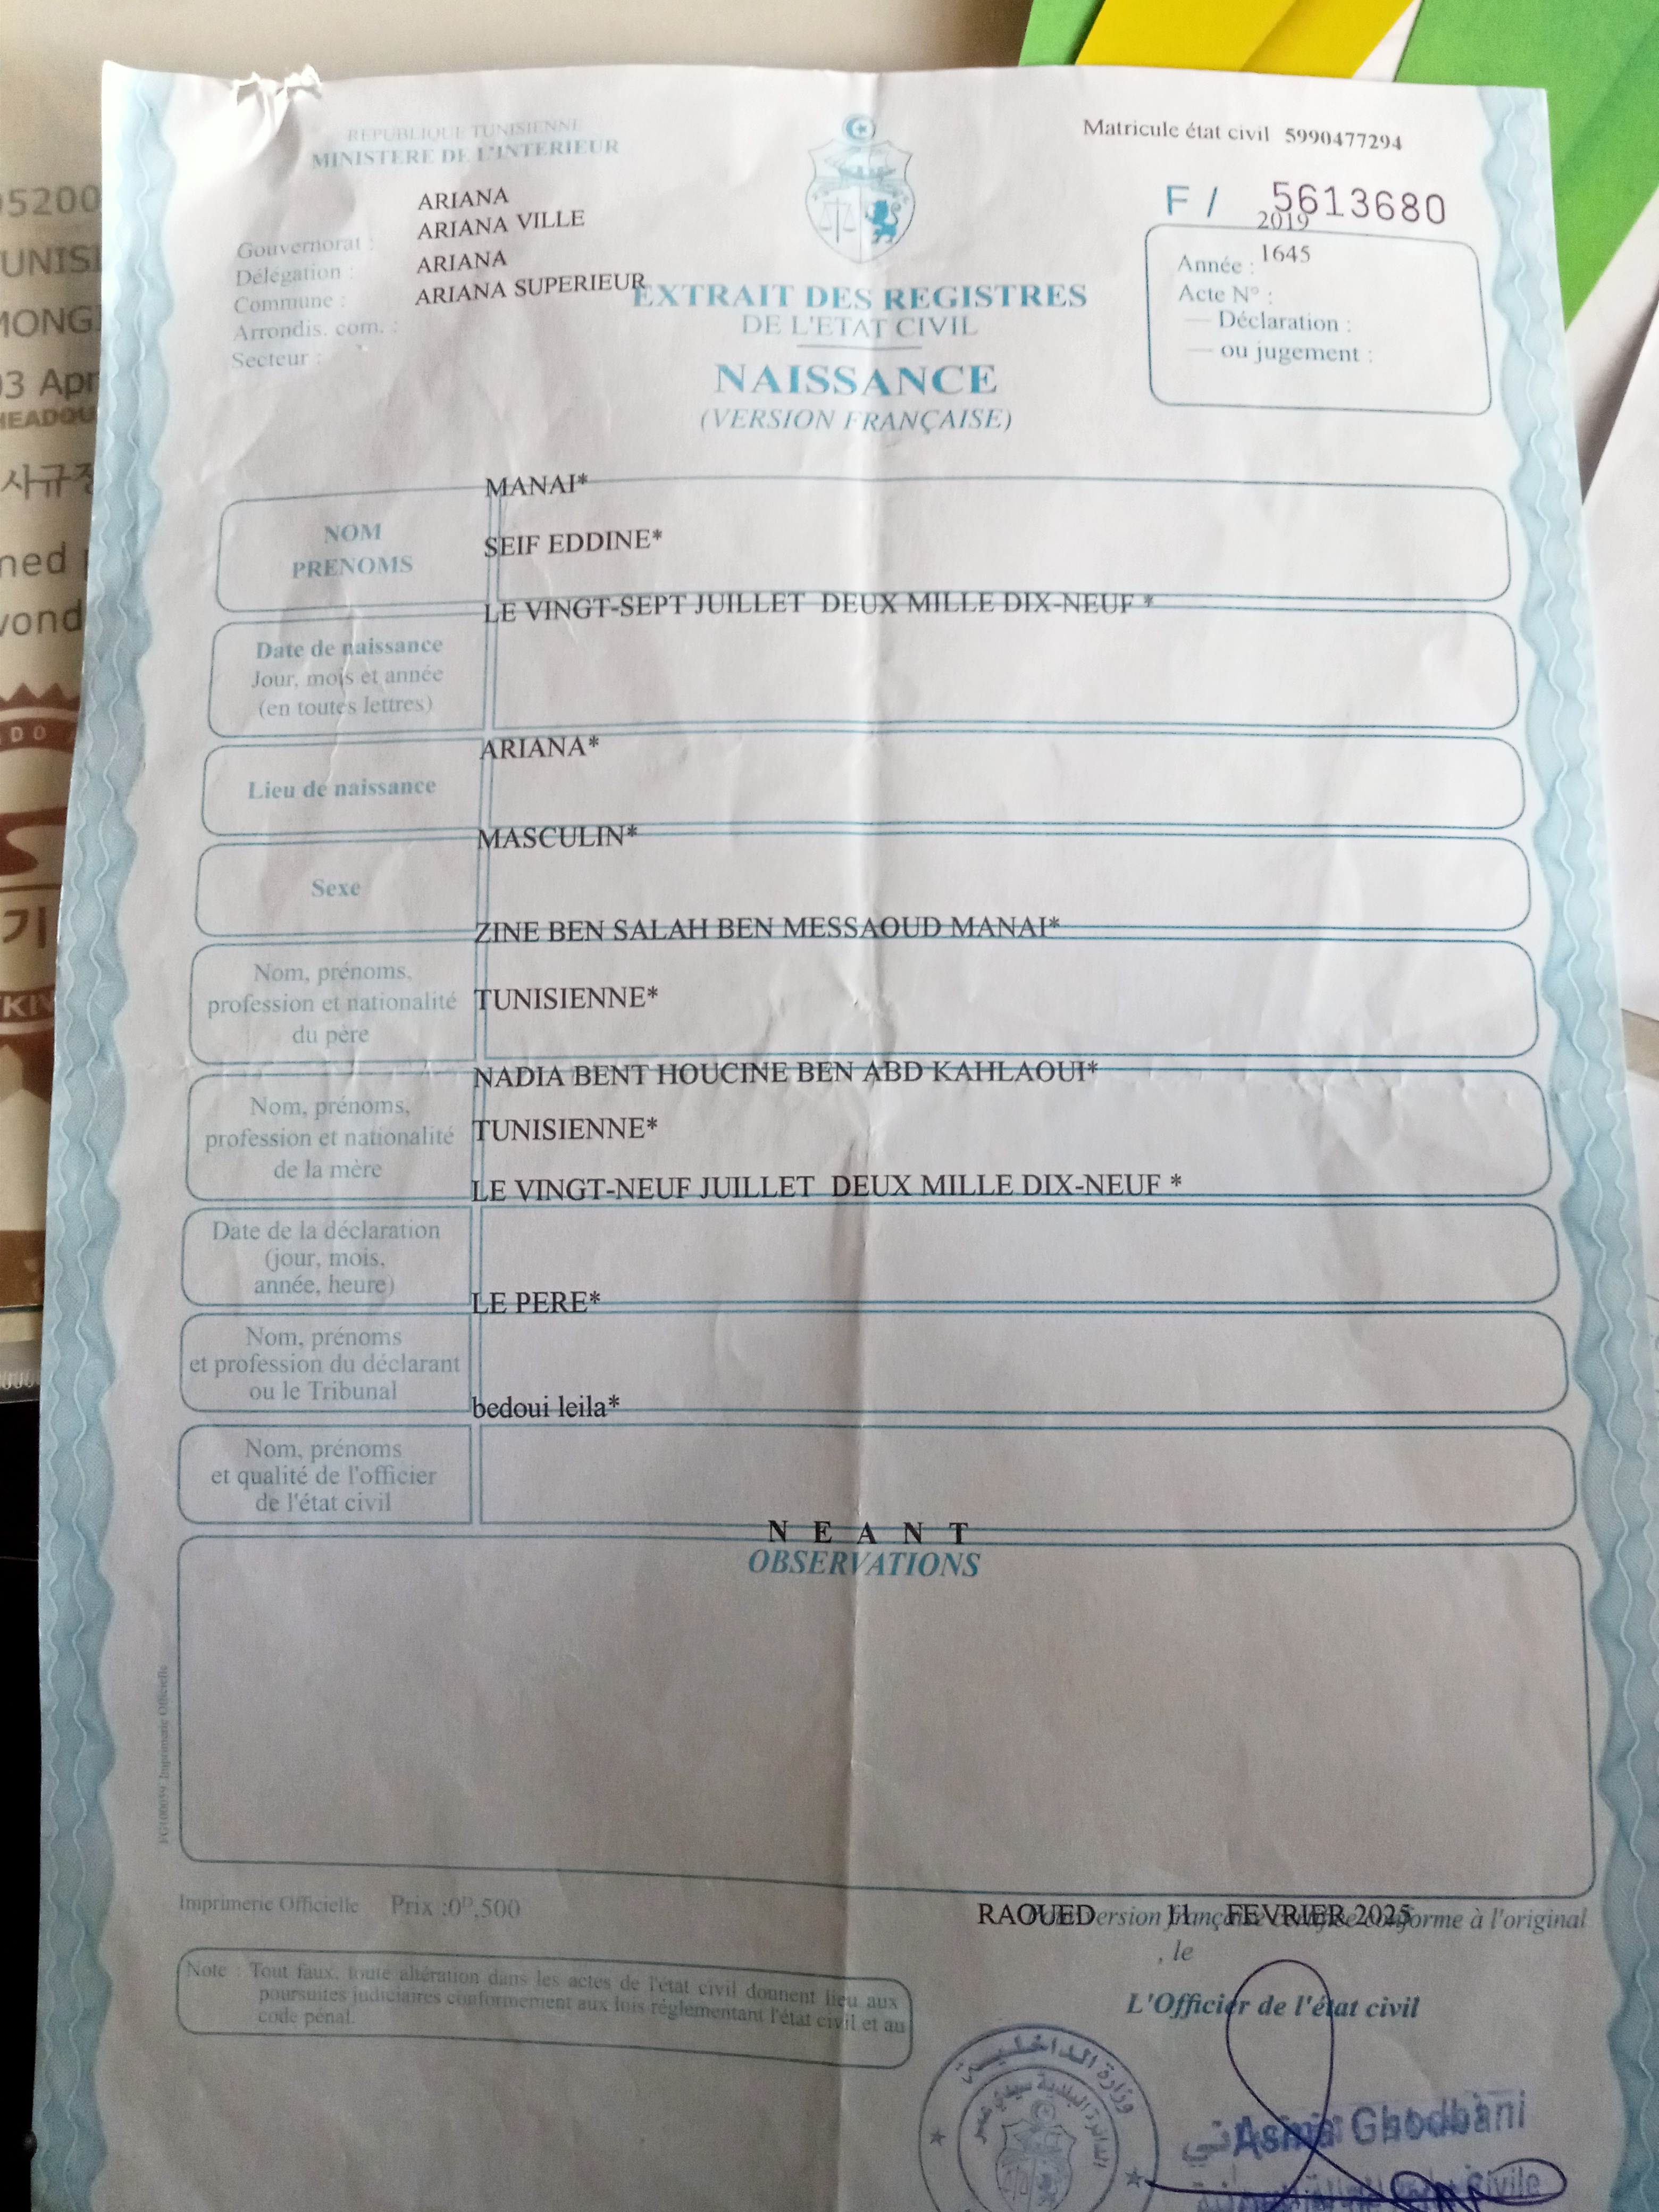 REPUBLIQUE TUNISIENNE
MINISTERE DE L'INTERIEUR
Matricule état civil 5990477294
F / 5613680
ARIANA
ARIANA VILLE
ARIANA
ARIANA SUPERIEUR
Gouvernorat :
Délégation :
Commune :
Arrondis. com. :
Secteur :
2019
1645
Année :
Acte N° :
— Déclaration :
— ou jugement :
EXTRAIT DES REGISTRES
DE L'ETAT CIVIL
NAISSANCE
(VERSION FRANÇAISE)
MANAI*
NOM
SEIF EDDINE*
PRENOMS
LE VINGT-SEPT JUILLET DEUX MILLE DIX-NEUF *
Date de naissance
Jour, mois et année
(en toutes lettres)
ARIANA*
Lieu de naissance
MASCULIN*
Sexe
ZINE BEN SALAH BEN MESSAOUD MANAI*
Nom, prénoms,
profession et nationalité
du père
TUNISIENNE*
NADIA BENT HOUCINE BEN ABD KAHLAOUI*
Nom, prénoms,
profession et nationalité
de la mère
TUNISIENNE*
LE VINGT-NEUF JUILLET DEUX MILLE DIX-NEUF *
Date de la déclaration
(jour, mois,
année, heure)
LE PERE*
Nom, prénoms
et profession du déclarant
ou le Tribunal
bedoui leila*
Nom, prénoms
et qualité de l'officier
de l'état civil
N E A N T
OBSERVATIONS
Imprimerie Officielle
Imprimerie Officielle Prix :0ᴰ,500
RAOUED 11 FEVRIER 2025
version française conforme à l'original
, le
L'Officier de l'état civil
Note : Tout faux, toute altération dans les actes de l'état civil donnent lieu aux
poursuites judiciaires conformement aux lois réglementant l'état civil et au
code pénal.
وزارة الداخلية
Asma Ghodbani
Civile
5200
UNISI
MONG
03 Apr
HEADQU
사규정
ned
wond
DO
기
KIN